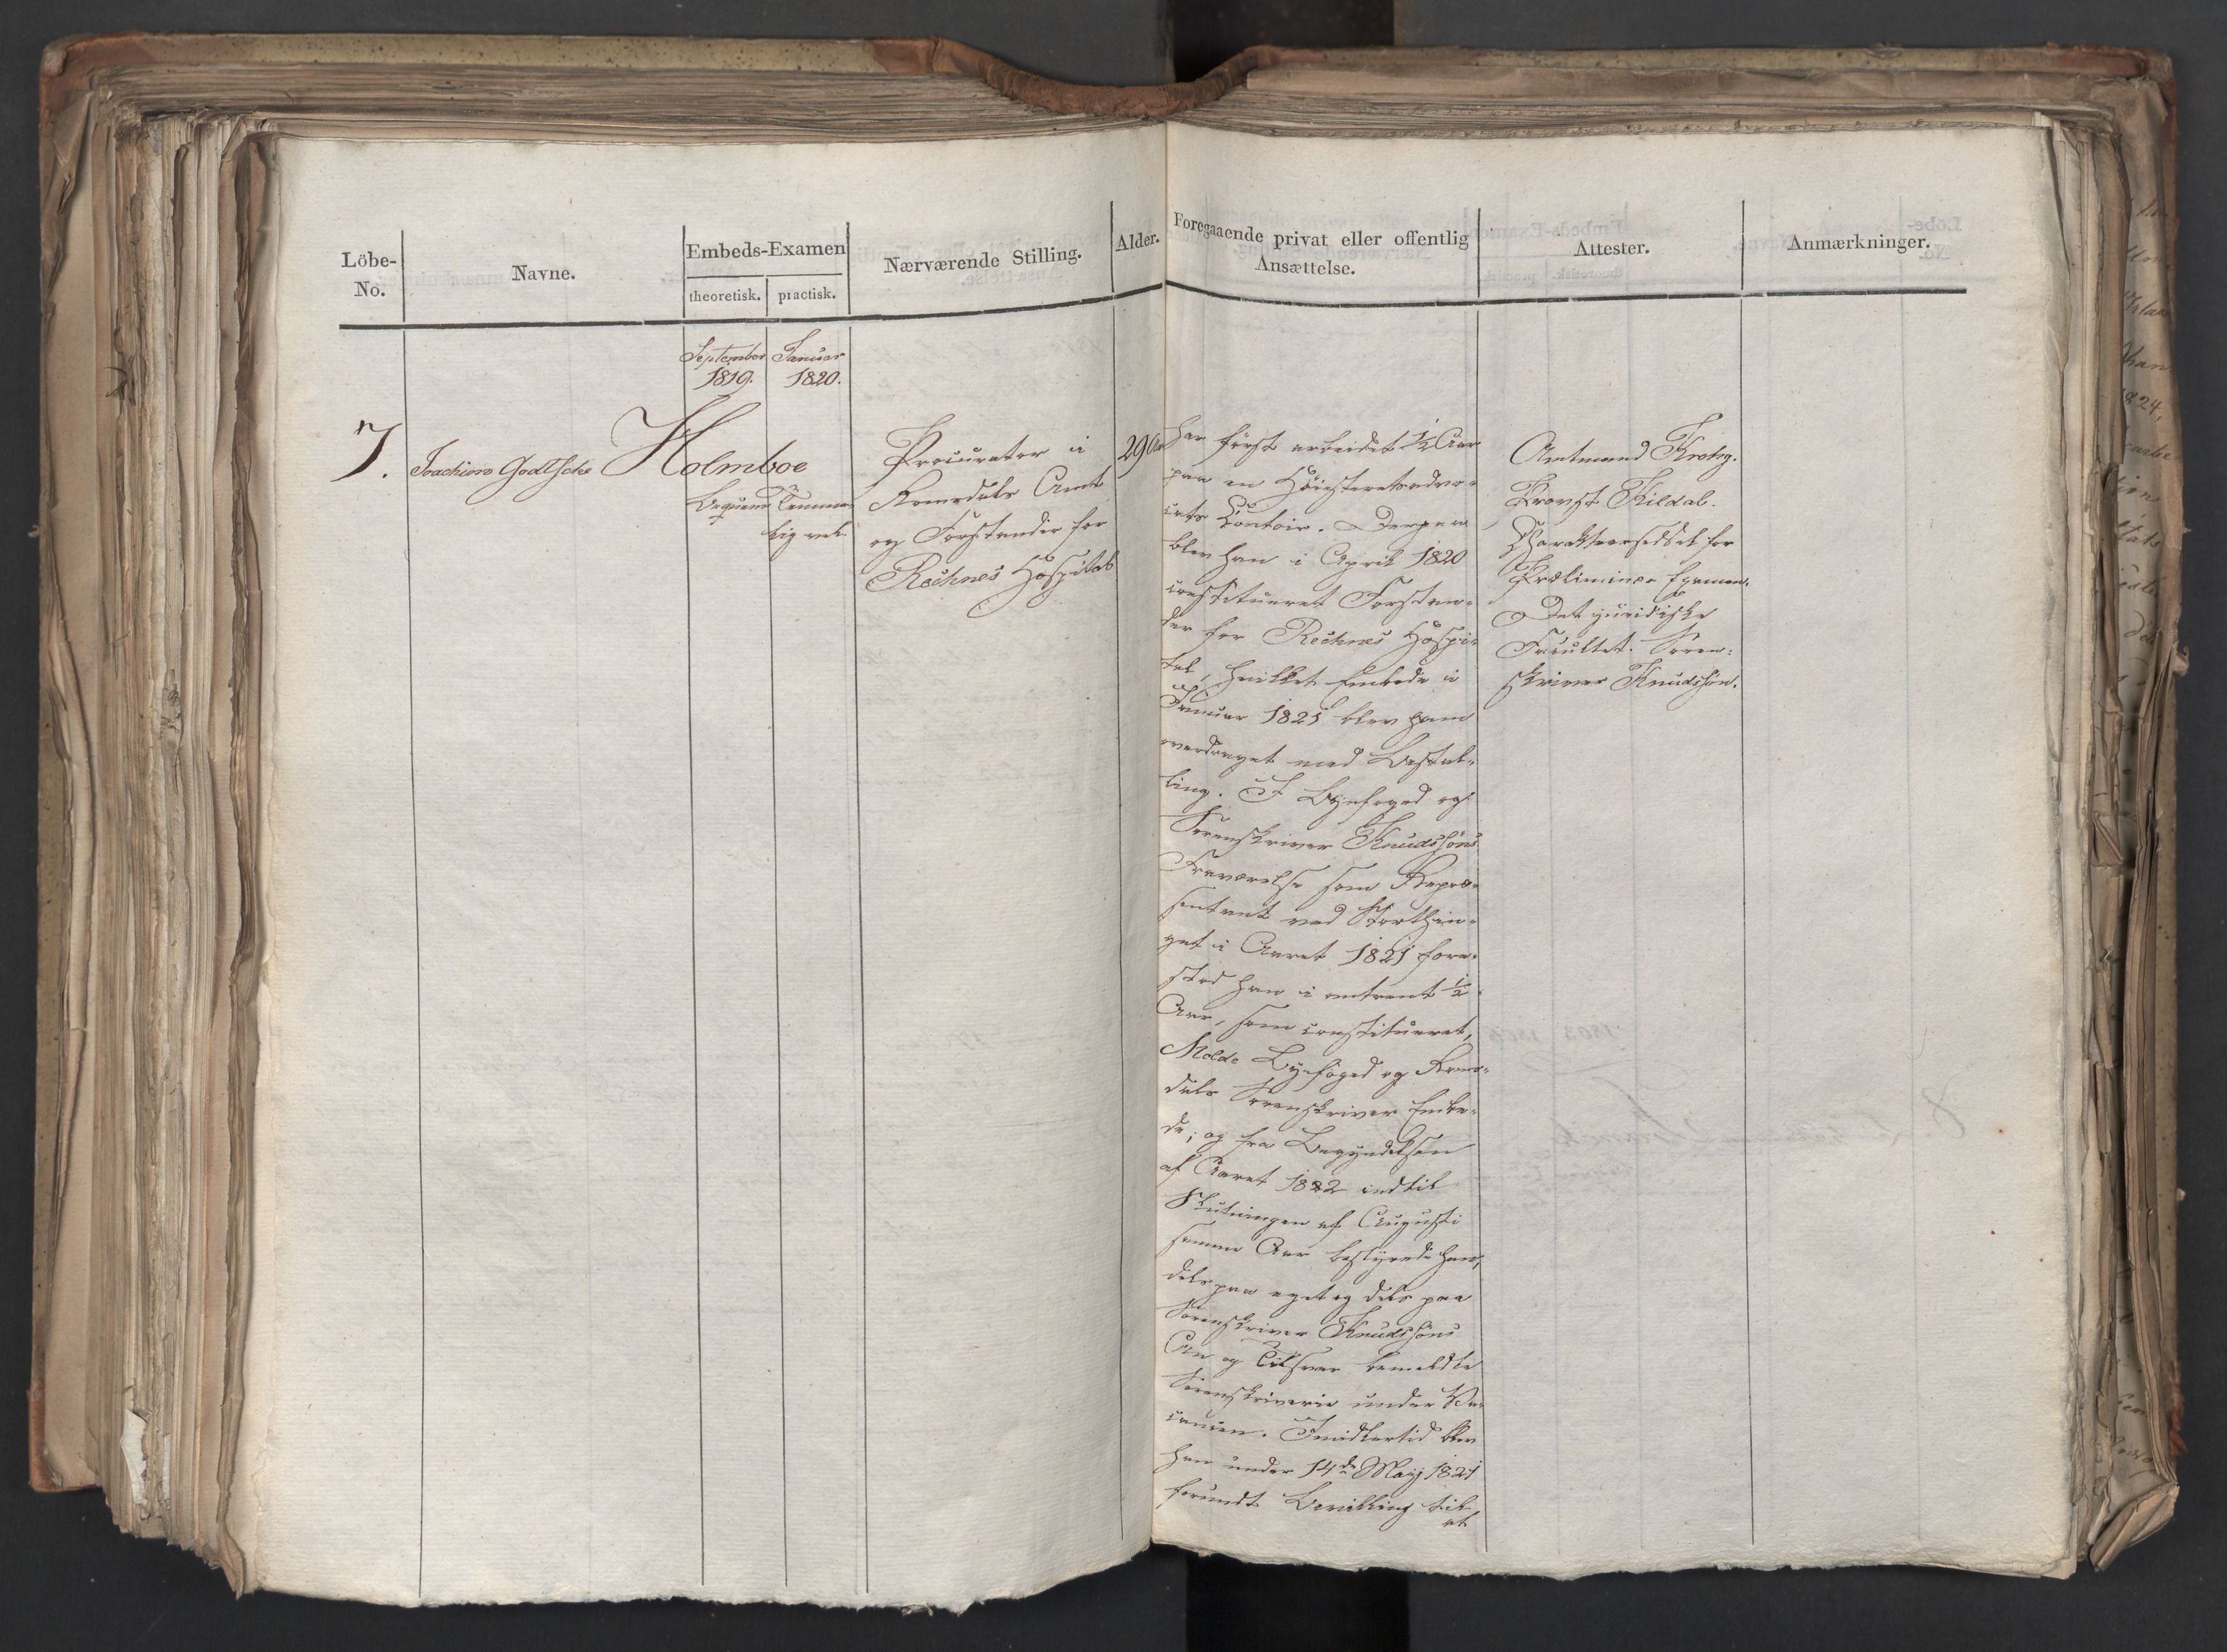 Löbe-
No.
Navne.
Embeds-Examen
theoretisk.
practisk.
Nærværende Stilling.
Alder.
Foregaaende privat eller offentlig
Ansættelse.
Attester.
Anmærkninger.
September
1819.
Januar
1820.
7.
Joachim Godtsche Holmboe
Beqvem
Temme-
lig vel.
Procurator i
Romsdals Amt
og Forstander for
Reitnes Hospital
29 Aar
Har först arbeidet ½ Aar
paa en Höiesteretsadvo-
cats Contoir. Derpaa
blev han i April 1820
constitueret Forstan-
der for Reitnes Hospi-
tal, hvilket Embede i
Januar 1821 blev ham
overdraget med Bestal-
ling. I Byefoged og
Sorenskriver Knudssöns
Fraværelse som Repræ-
sentant ved Storthin-
get i Aaret 1821 fore-
stod han i omtrent ½
Aar, som constitueret,
Molde Byefoged og Roms-
dals Sorenskriver Embe-
de; og fra Begyndelsen
af Aaret 1822 indtil
Slutningen af Augusti
samme Aar bestyrede han,
dels paa eget og dels paa
Sorenskriver Knudssöns
An og Tilsvar bemeldte
Sorenskriverie under Va-
cancen. Imidlertid blev
han under 14de Maij 1821
forundt Bevilling til
at
Amtmand Krohg.
Provst Kildal.
Charakteerseddel for
Præliminær Examen.
Det juridiske
Facultet. Soren-
skriver Knudssön.